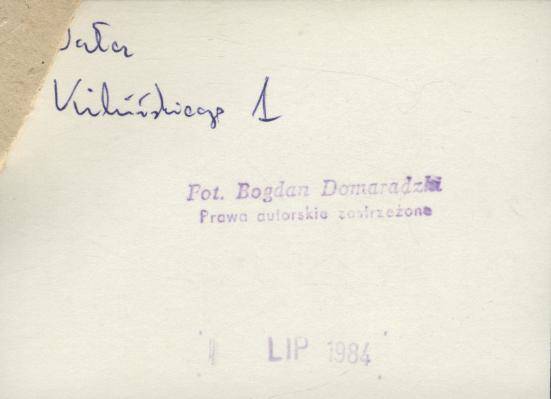 Kilińskiego 1
Fot. Bogdan Domaradzki
Prawa autorskie zastrzeżone
LIP 1984